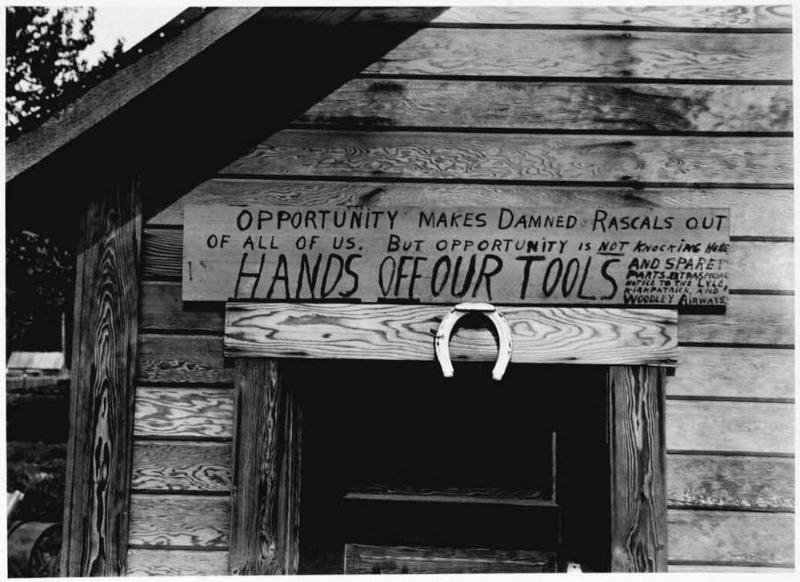 OPPORTUNITY MAKES DAMNED RASCALS OUT
OF ALL OF US. BUT OPPORTUNITY IS NOT KNOCKING HERE
HANDS OFF OUR TOOLS
AND SPARE
PARTS. EXTRASPECIAL
NOTICE TO THE LYLE,
KIRKPATRICK, AND
WOODLEY AIRWAYS